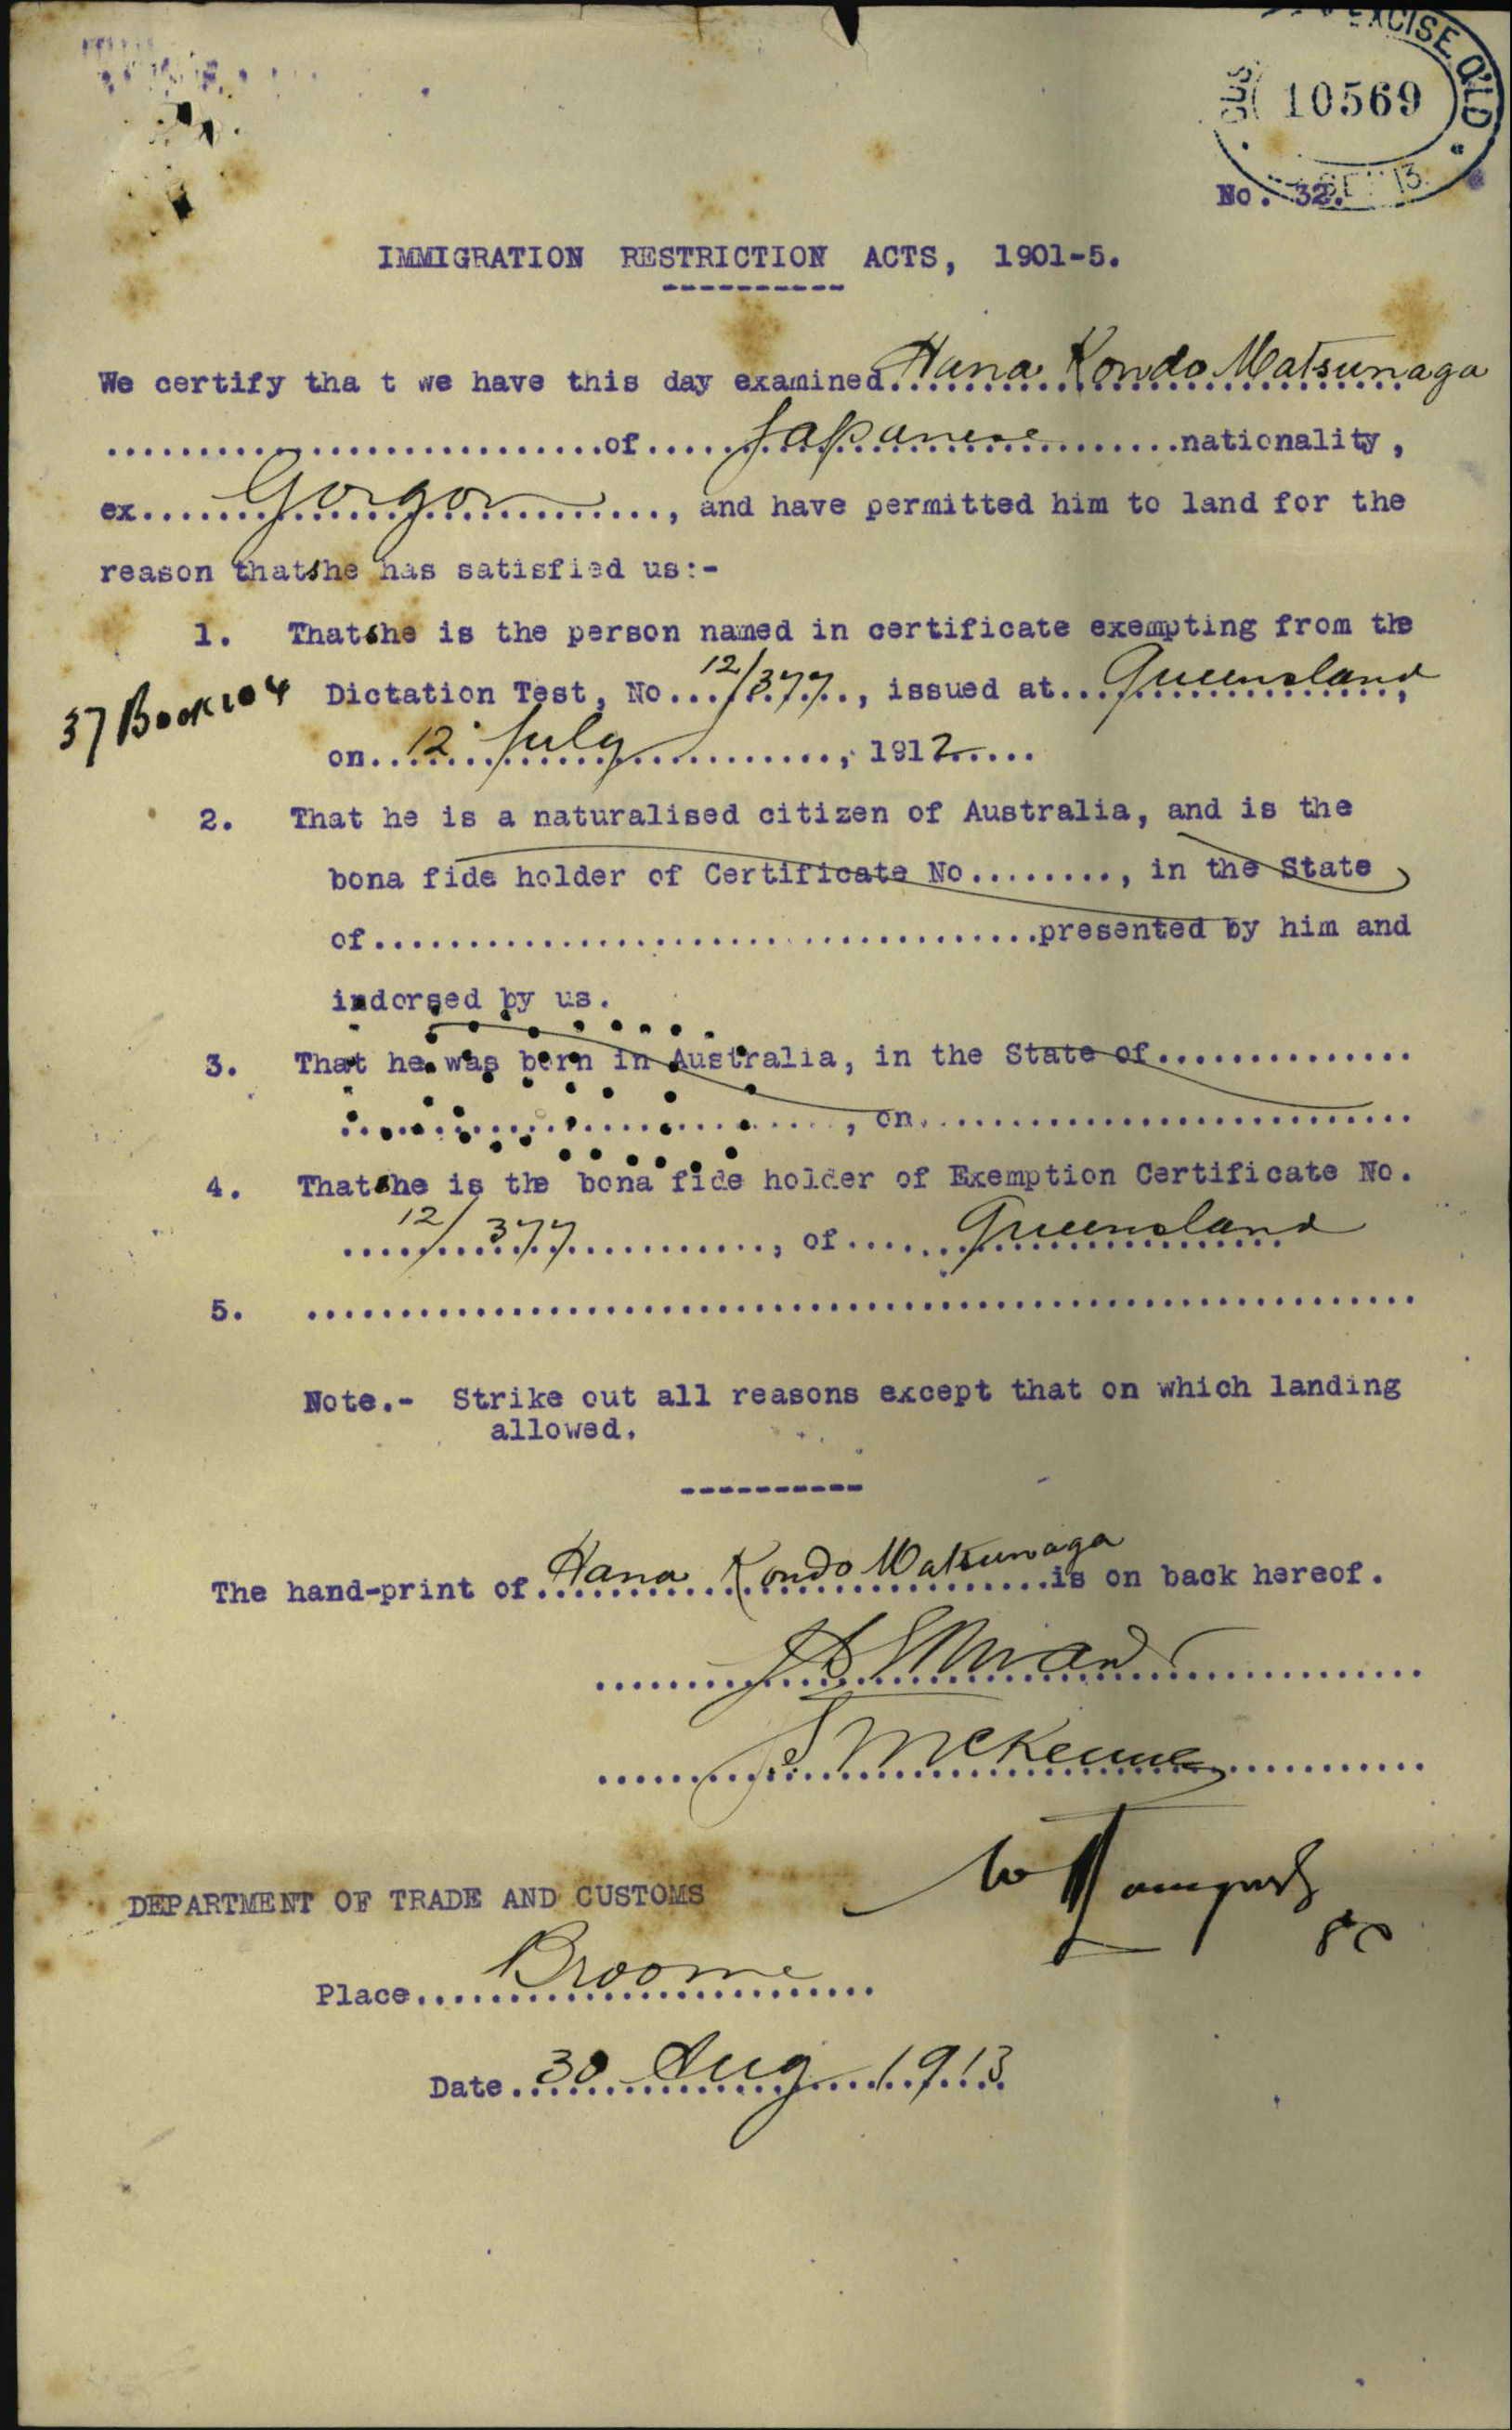 EXCISE Q'LD
CUS
10569
13
No. 32.
IMMIGRATION RESTRICTION ACTS, 1901-5.
We certify tha t we have this day examined Hana Kondo Matsunaga
of Japanese nationality,
ex Gorgon, and have permitted him to land for the
reason that she has satisfied us:-
1. That she is the person named in certificate exempting from the
37 Book 104
Dictation Test, No. 12/377, issued at Queensland,
on 12 July, 1912
2. That he is a naturalised citizen of Australia, and is the
bona fide holder of Certificate No........., in the State
of....................................presented by him and
indorsed by us.
3. That he was born in Australia, in the State of..............
............................, on...........................
4. That she is the bona fide holder of Exemption Certificate No.
12/377, of Queensland
5. ............................................................
Note.- Strike out all reasons except that on which landing
allowed.
The hand-print of Hana Kondo Matsunaga is on back hereof.
McKenna
DEPARTMENT OF TRADE AND CUSTOMS
Place Broome
Date 30 Aug 1913